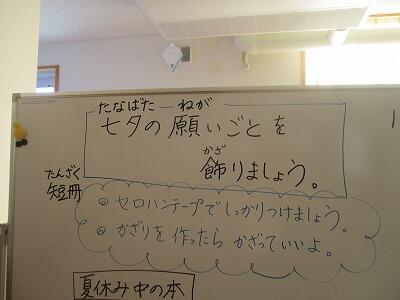 たなばた ねが
七夕の願いごとを
かざ
飾りましょう。
たんざく
短冊
◎ セロハンテープでしっかりつけましょう。
◎ かざりを作ったら かざっていいよ。
夏休み中の本